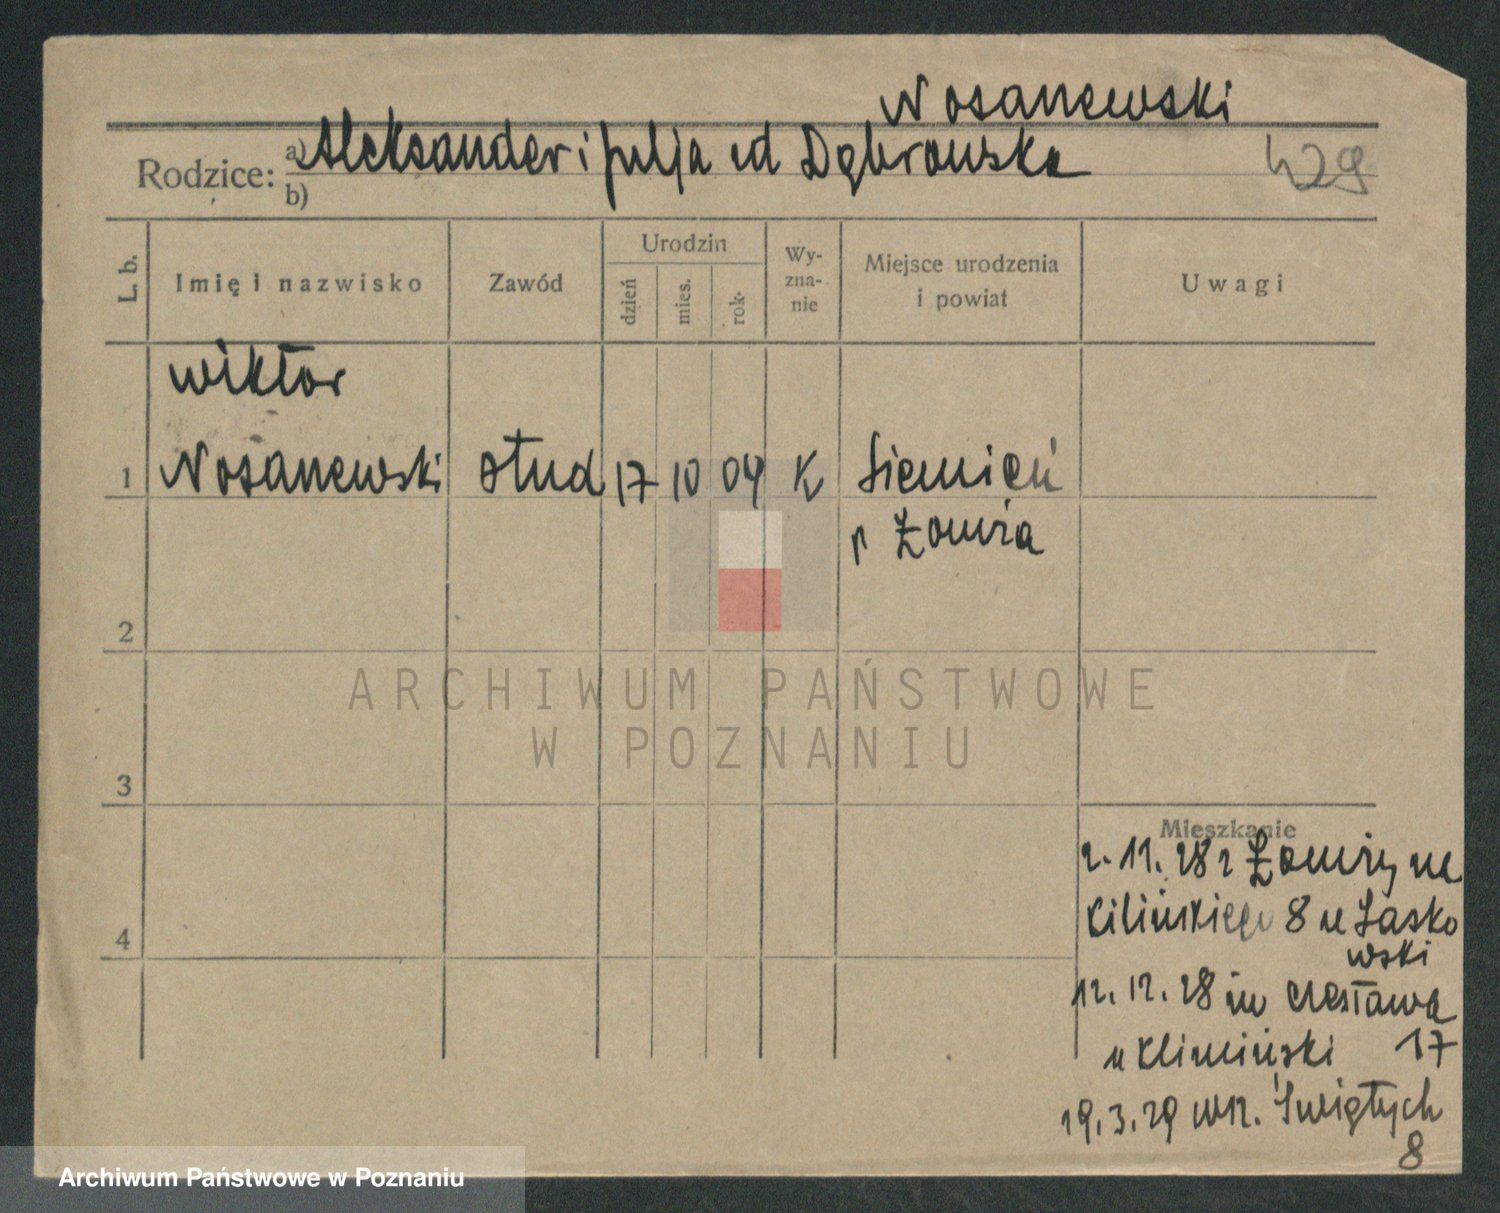 Nosanewski
Rodzice: a) Aleksander i Julja od Dąbrowska
b)
429
L. b.
Imię i nazwisko
Zawód
Urodzin
dzień
mies.
rok
Wy-
zna-
nie
Miejsce urodzenia
i powiat
Uwagi
Wiktor
1 Nosanewski stud 17 10 04 K Siemień
p Łomża
2
3
4
ARCHIWUM PAŃSTWOWE
W POZNANIU
Mieszkanie
2. 11. 28 z Łomży na
Kilińskiego 8 u Łasko
wski
12. 12. 28 im Czesława
u Klimiński 17
19. 3. 29 Wsz. Świętych
8
Archiwum Państwowe w Poznaniu